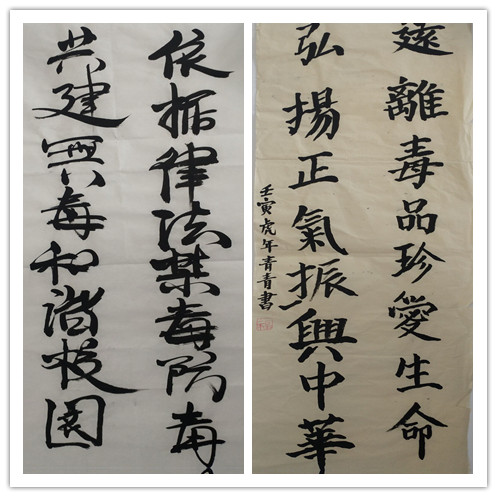 依据律法禁毒防毒
共建無毒和谐校園
遠離毒品珍愛生命
弘揚正氣振興中華
壬寅虎年青青書